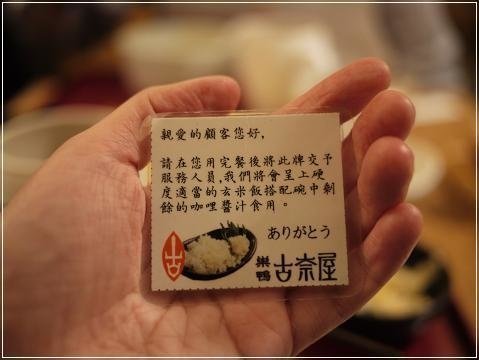 親愛的顧客您好,
請在您用完餐後將此牌交予
服務人員,我們將會呈上硬
度適當的玄米飯搭配碗中剩
餘的咖哩醬汁食用。
ありがとう
巣鴨 古奈屋
古